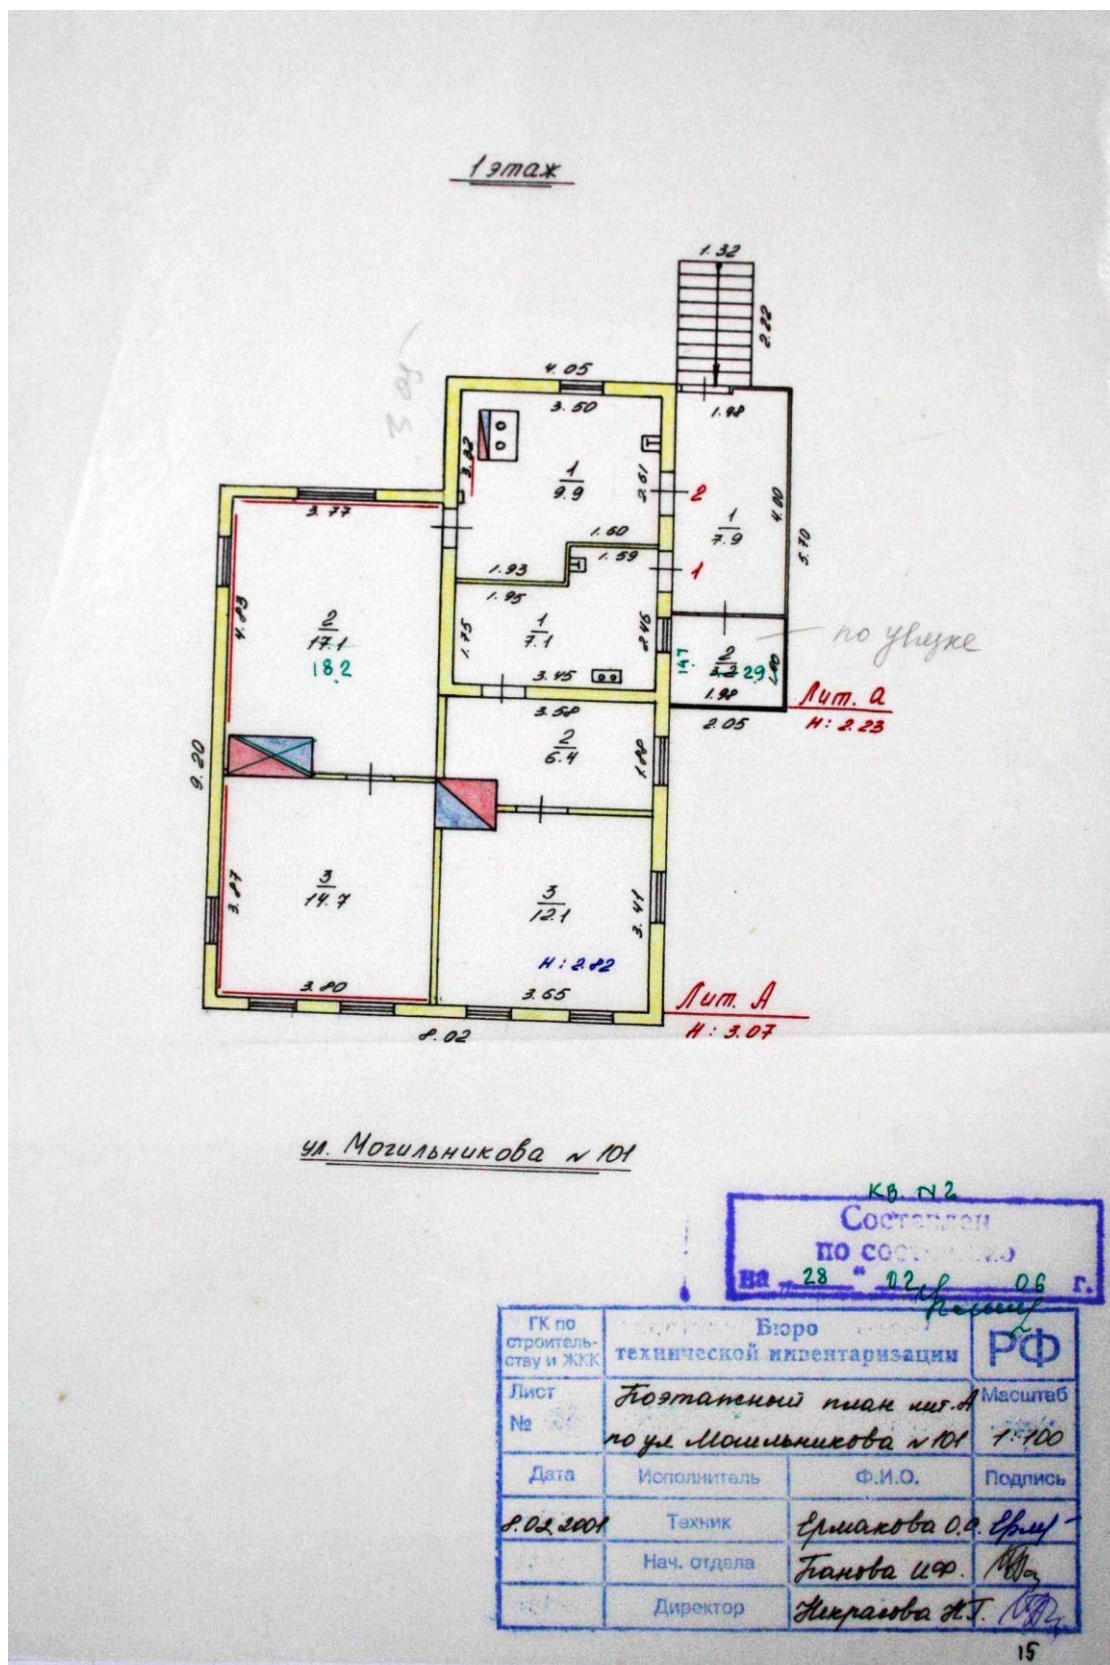 1 этаж
1.32
2.22
4.05
3.50
1.98
3.82
1
9.9
2.61
2
1
7.9
4.00
5.70
3.77
1.60
1.59
1
1.93
1.95
4.83
2
17.1
18.2
1.75
1
7.1
2.46
3.45
по увязке
1.47
2
3.2 2.9
1.98
2.05
Лит. а
Н: 2.23
3.58
2
6.4
1.88
9.20
3
14.7
3.87
3
12.1
3.41
Н: 2.82
3.80
3.65
Лит. А
Н: 3.07
8.02
ул. Могильникова № 101
кв. №2
Составлен
по состоянию
на „28“ 02 06 г.
ГК по строительству и ЖКК
Бюро
технической инвентаризации
РФ
Лист
№
Поэтажный план лит. А
по ул Могильникова № 101
Масштаб
1:100
Дата Исполнитель Ф.И.О. Подпись
8.02.2001 Техник Ермакова О.С.
Нач. отдела Панова И.Ф.
Директор Некрасова Н.Г.
15